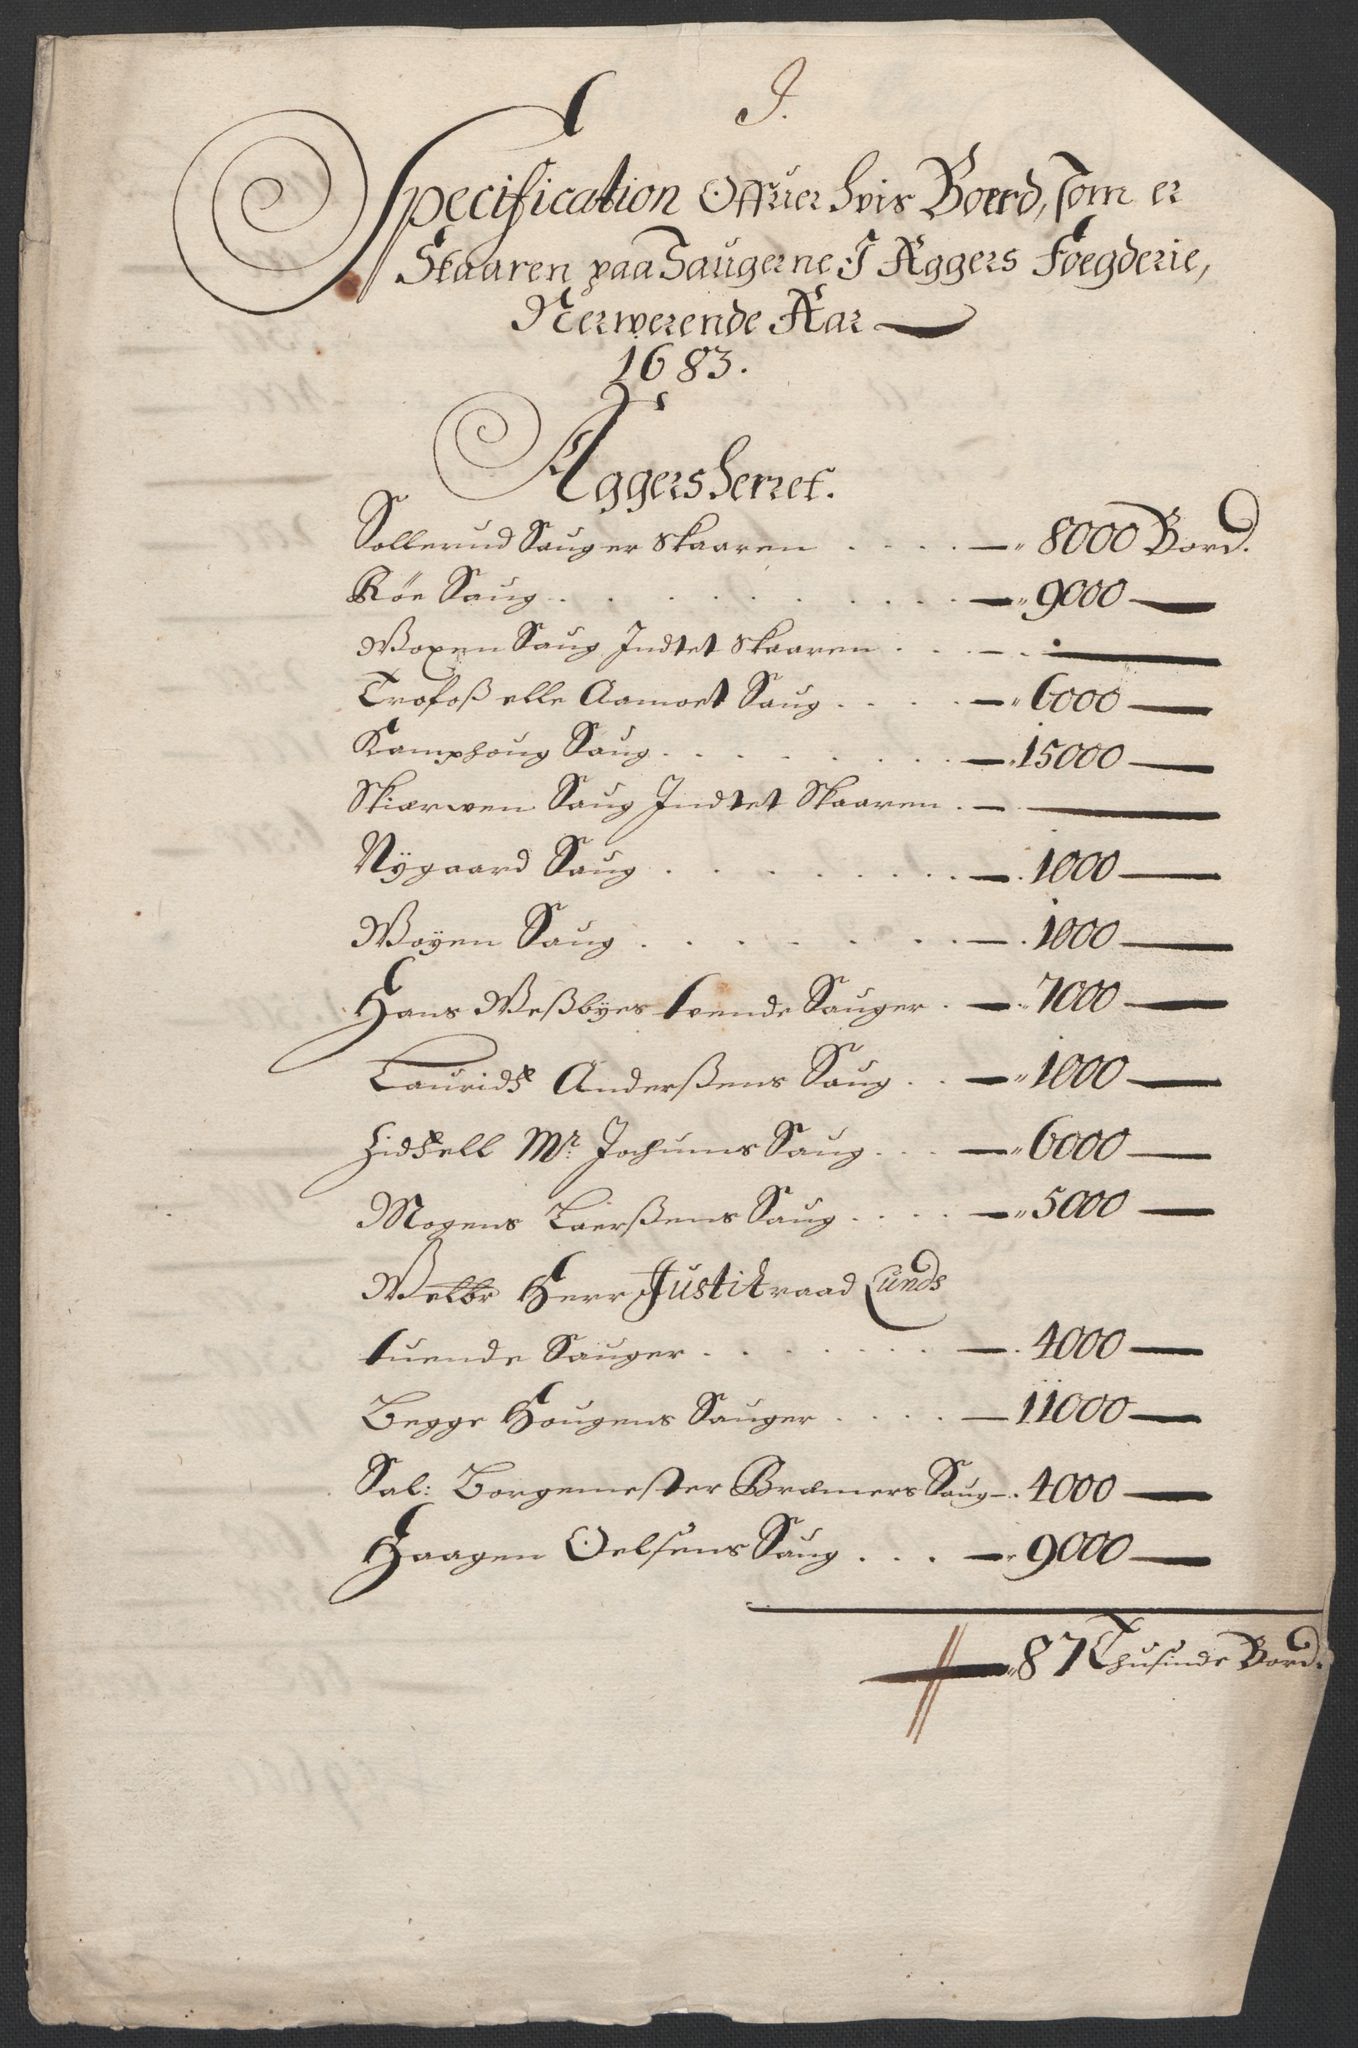 J.
Specification Offuer hvis Boerd, som er
Skaaren paa Saugerne J Aggers Foegderie,
Nerwerende Aar
1683.
Aggersherret.
Sollerud Saug er skaaren . . . . — 8000 Bord.
Röe Saug . . . . . . . . — 9000 —
Woxen Saug Indtet skaaren . . . — . —
Trofoß elle Aamoet Saug . . . . — 6000 —
Kamphoug Saug . . . . . . . — 15000 —
Skiærwen Saug Indtet Skaaren . — . —
Nygaard Saug . . . . . . . — 1000 —
Woyen Saug . . . . . . . — 1000 —
Hans Weßbyes tvende Sauger . — 7000 —
Lauridtz Anderßens Saug . . — 1000 —
Mr. Jochums Saug . . . — 6000 —
Mogens Laerßens Saug . . . . — 5000 —
Welbr Herr Justitzraad Lunds
tuende Sauger . . . . . . . — 4000 —
Begge Hougens Sauger . . . . — 11000 —
Sal: Borgemester Bræmers Saug — 4000 —
Haagen Oelsens Saug . . . — 9000 —
87 Thusinde Bord.